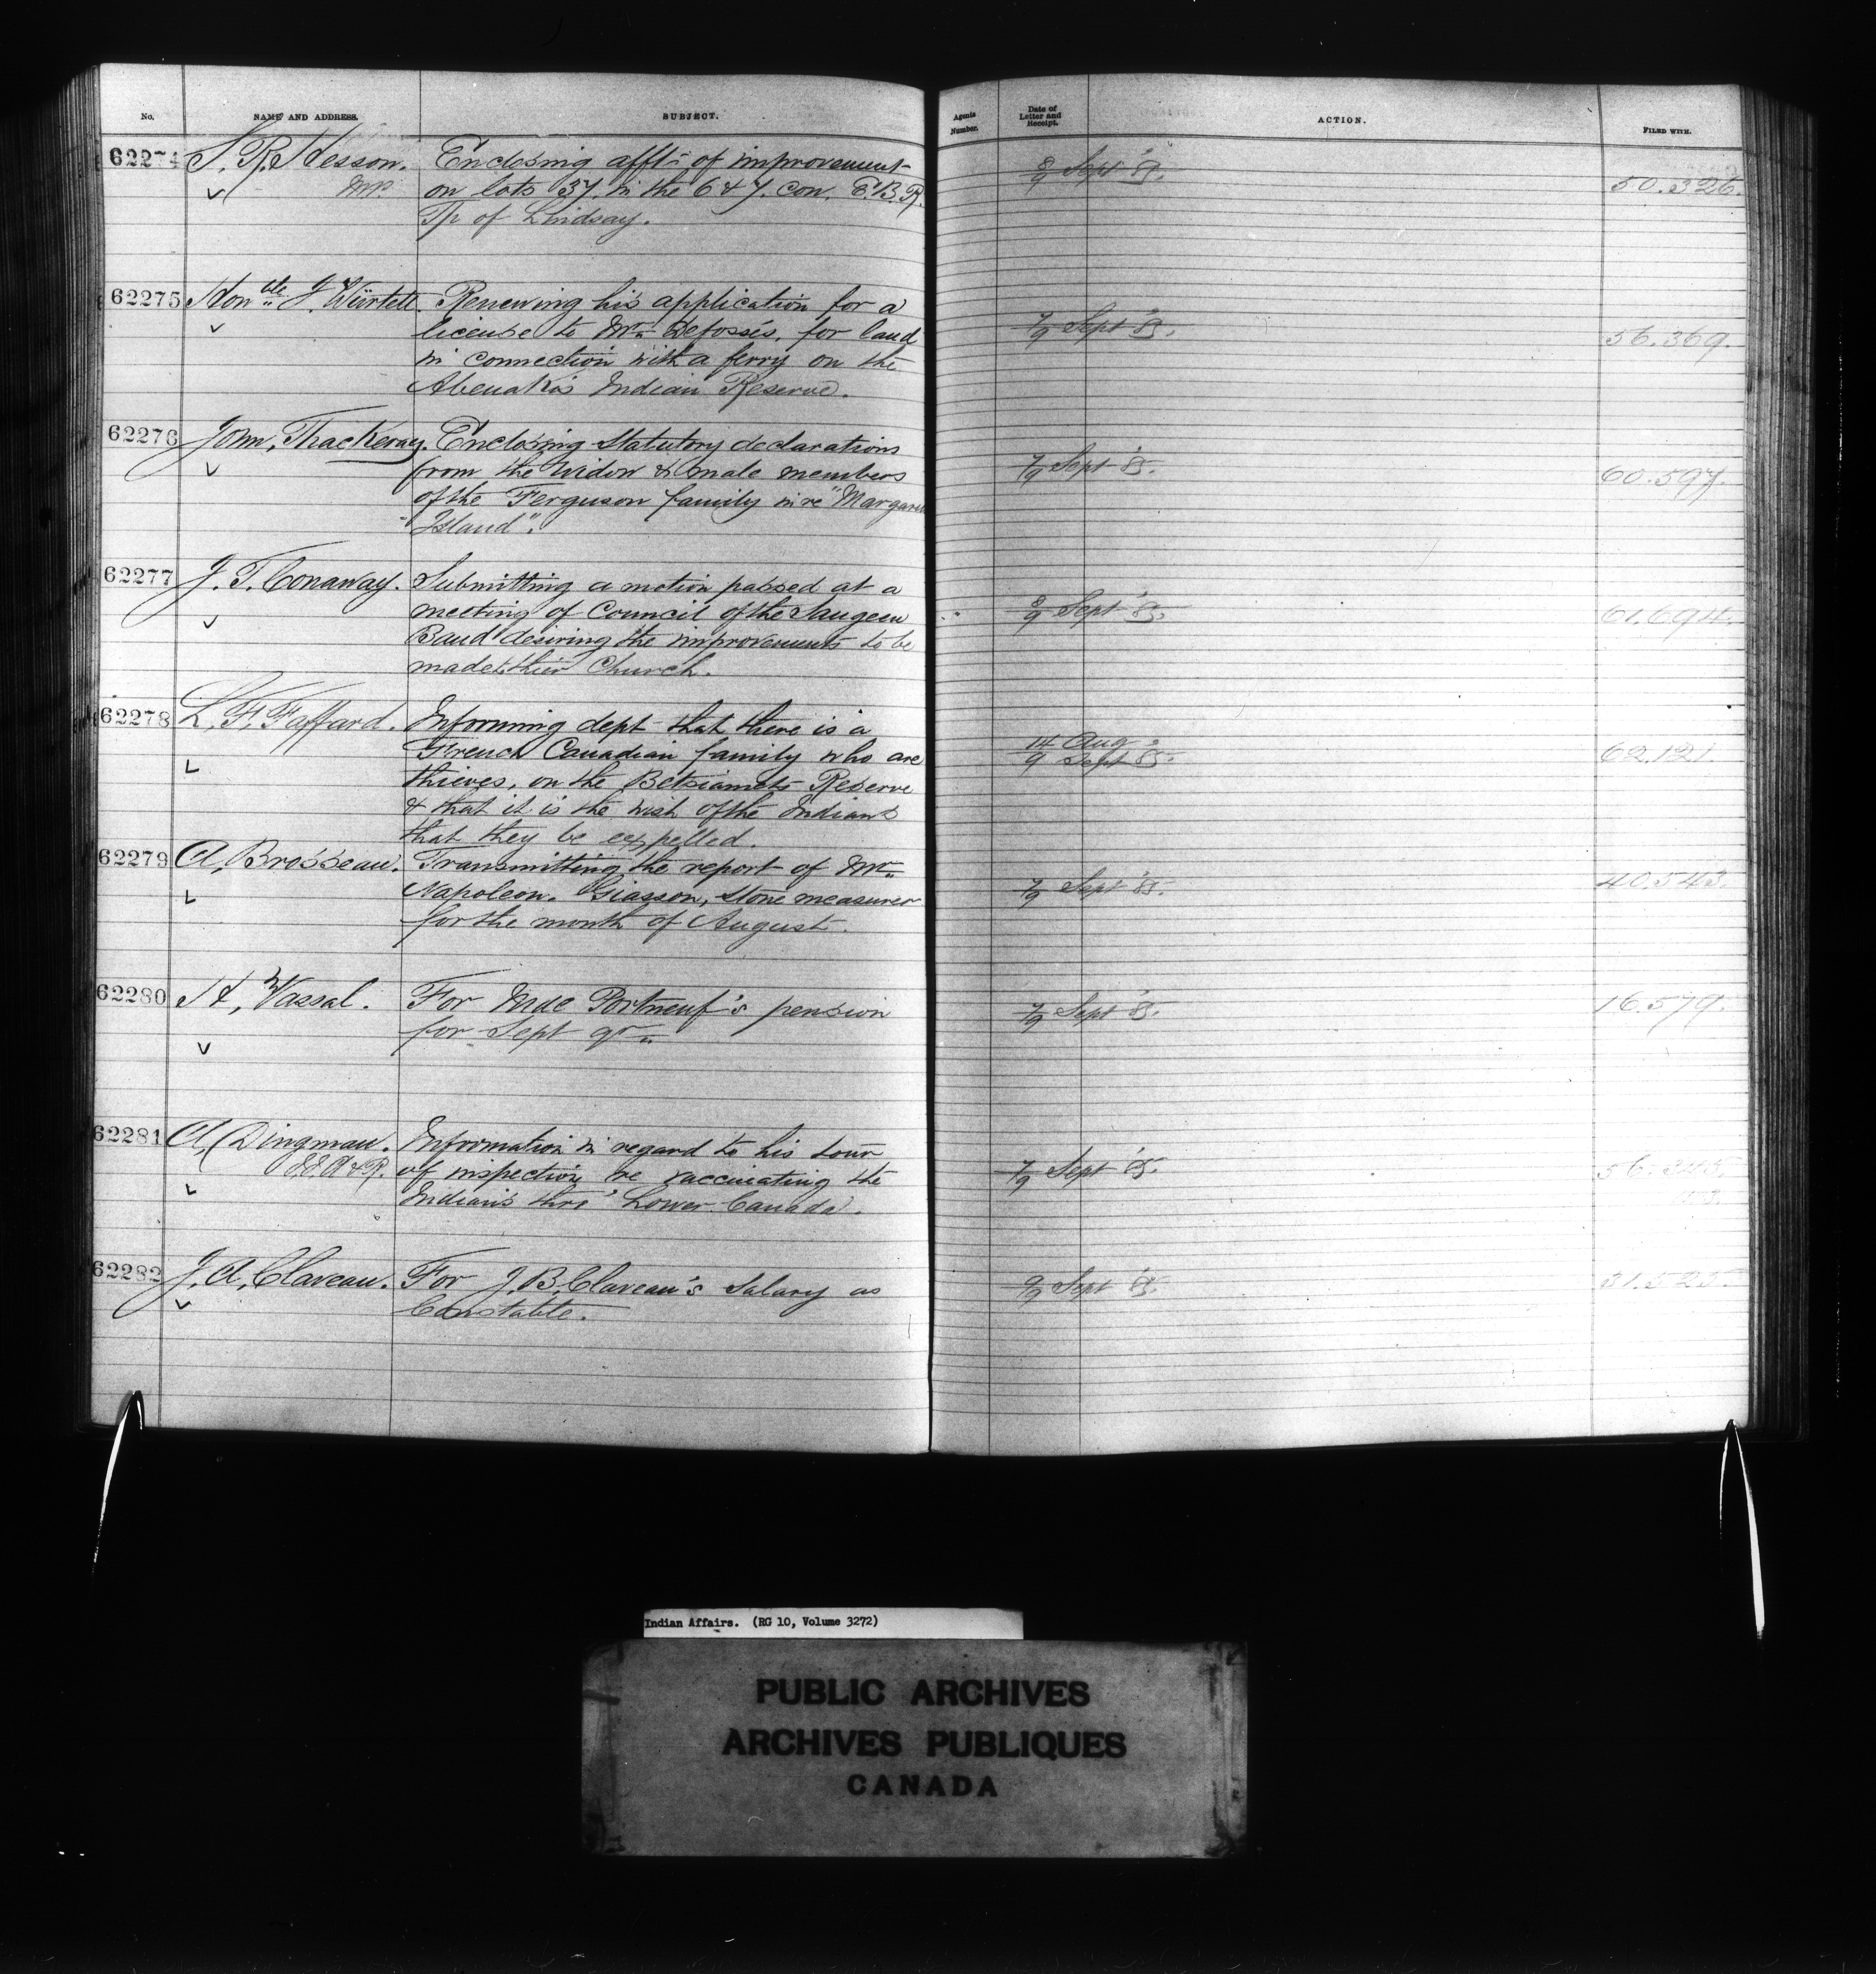 No.
NAME AND ADDRESS.
SUBJECT.
Agents Number.
Date of Letter and Receipt.
ACTION.
FILED WITH.
62274 S. R. Hesson. Enclosing affts of improvement
MP. on lots 37 in the 6 & 7. con. E.B.R.
Tp of Lindsay.
8/9 Sept '85.
50.326.
62275 Honble J. Würtele. Renewing his application for a
license to Mr. Defossés, for land
in connection with a ferry on the
Abenakis Indian Reserve.
7/9 Sept '85.
56.369.
62276 John, Thackeray. Enclosing Statutory declarations
from the Widow & male members
of the Ferguson family in re "Margaret
"Island".
7/9 Sept '85.
60.597.
62277 J. T. Conaway. Submitting a motion passed at a
meeting of Council of the Saugeen
Band desiring the improvements to be
made thier Church.
8/9 Sept '85.
61.694.
62278 L. F. Faffard. Informing dept that there is a
French Canadian family who are
thieves, on the Betsiamits Reserve
& that it is the wish of the Indians
that they be expelled.
14 Aug
9 Sept '85.
62.121.
62279 A. Brosseau. Transmitting the report of Mr.
Napoleon. Giasson, stone measurer
for the month of August.
7/9 Sept '85.
40.543.
62280 H, Vassal. For Mde Portneuf's pension
for Sept qr.
7/9 Sept '85.
16.579.
62281 A, Dingman. Information in regard to his tour
of inspection re vaccinating the
Indians thro' Lower Canada.
7/9 Sept '85.
56.345.
62282 J. A. Claveau. For J. B. Claveau's Salary as
Constable.
9/9 Sept '85.
31.525.
Indian Affairs. (RG 10, Volume 3272)
PUBLIC ARCHIVES
ARCHIVES PUBLIQUES
CANADA